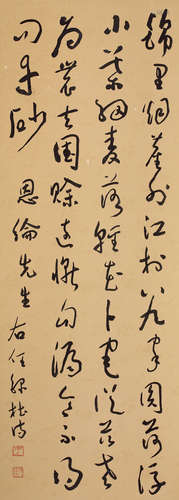 錦里煙塵外江村八九家圓荷浮
小葉細麥落輕花卜宅從茲老
為農去國賒遠慚句漏令不得
問丹砂 恩綸先生 右任錄杜詩